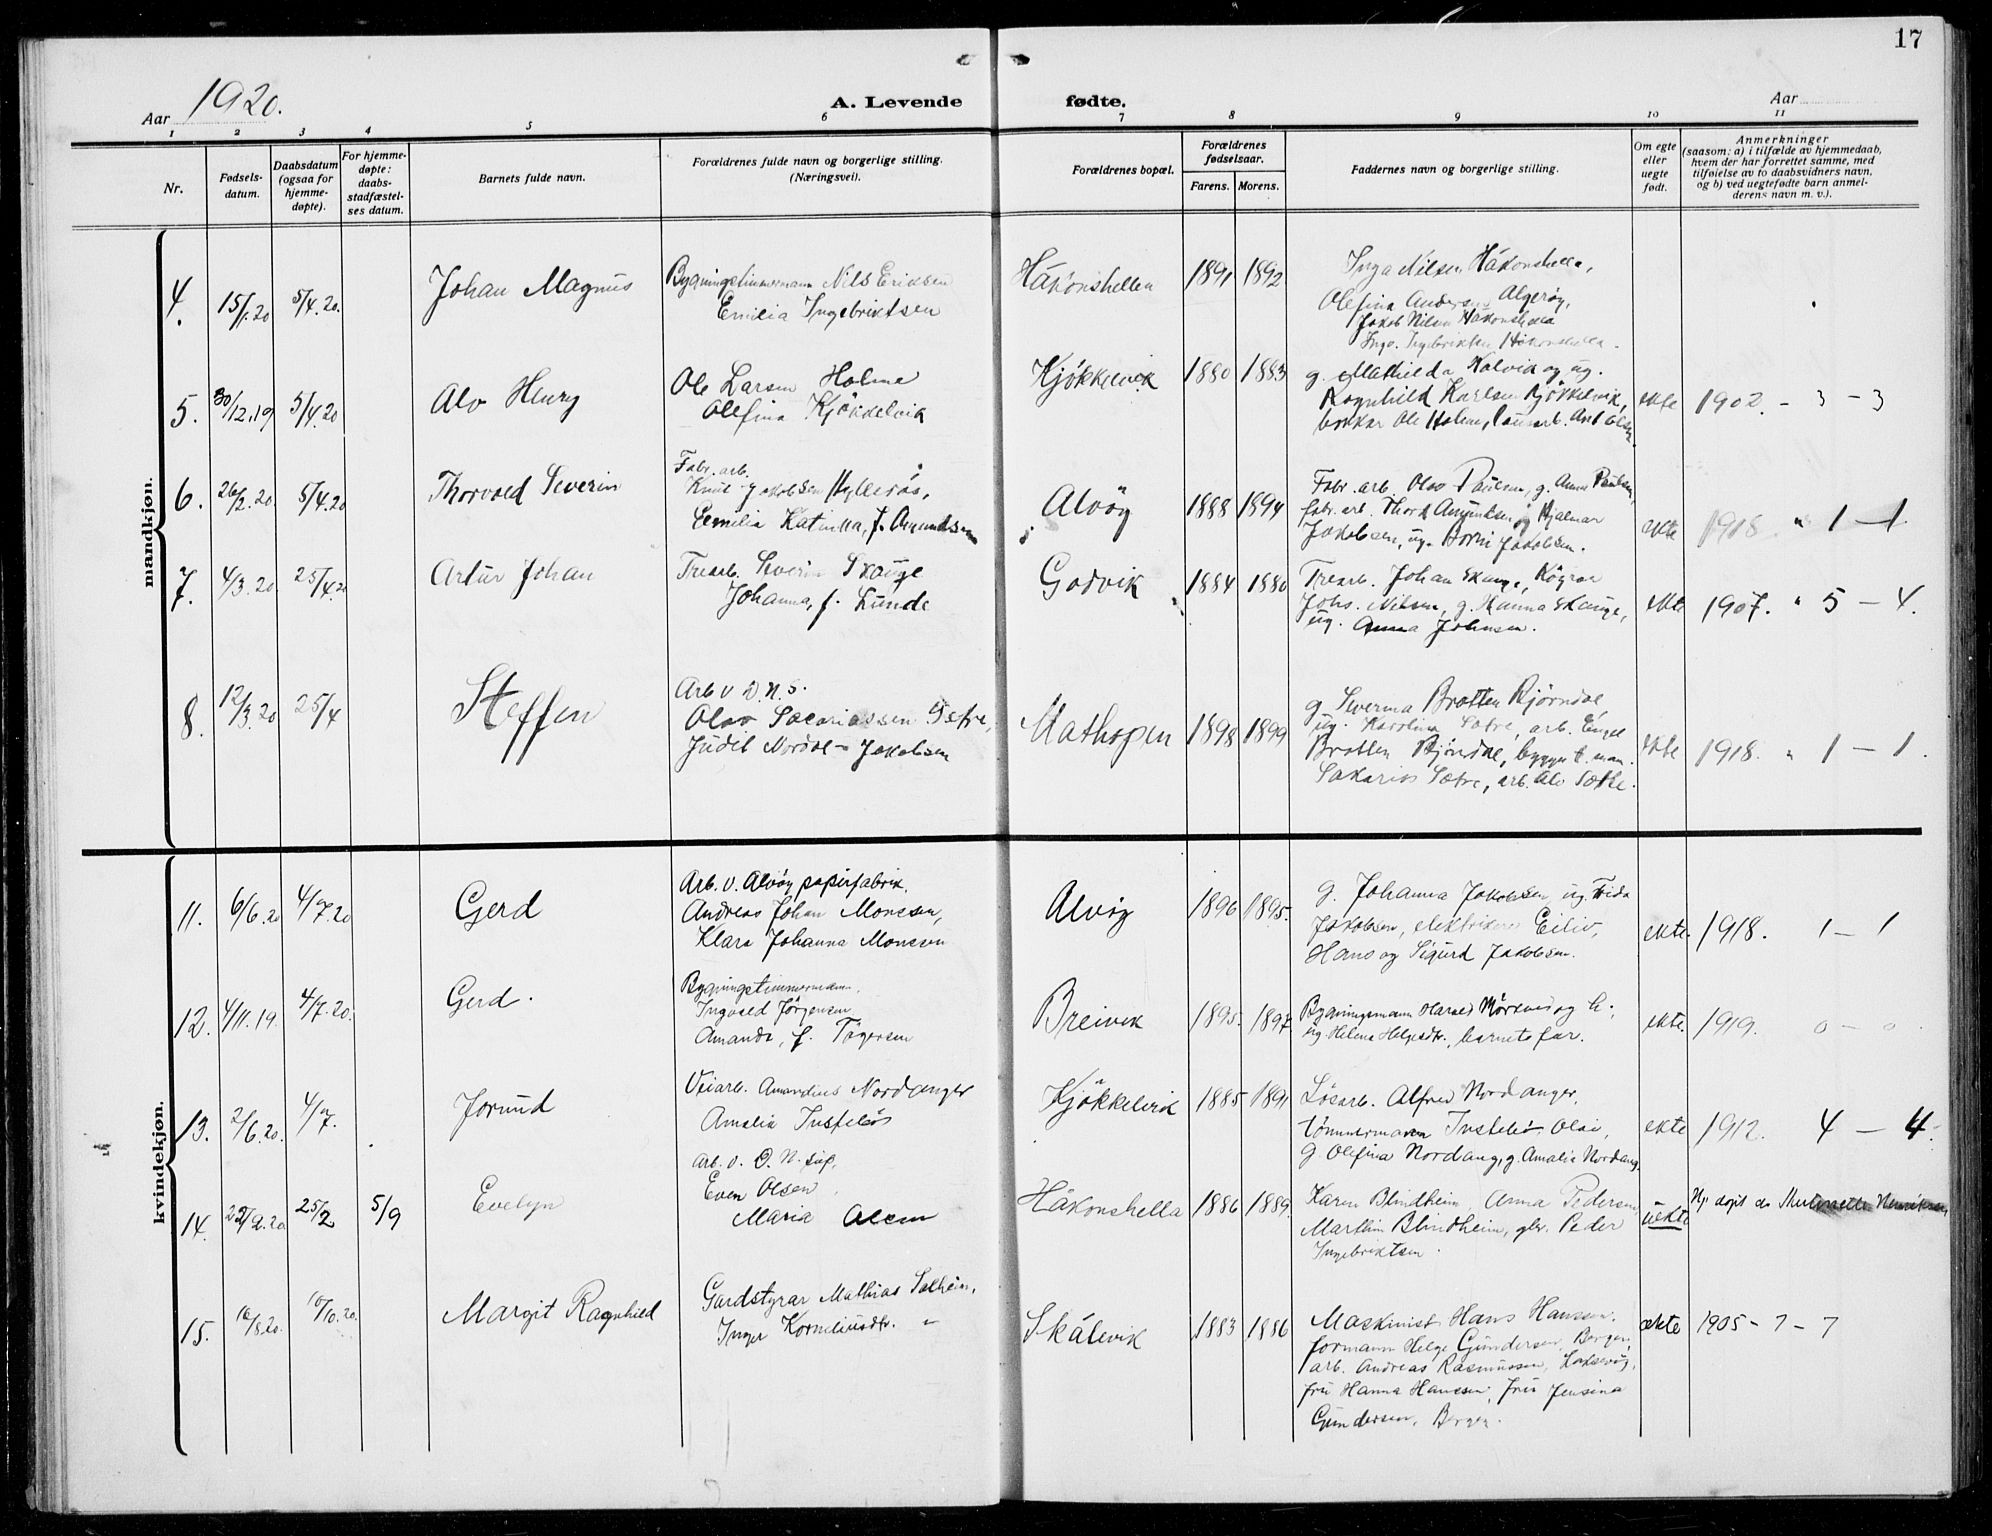 17
Aar 1920.
A. Levende fødte.
Aar
1 2 3 4 5 6 7 8 9 10 11
Nr.
Fødsels-
datum.
Daabsdatum
(ogsaa for
hjemme-
døpte).
For hjemme-
døpte:
daabs-
stadfæstel-
ses datum.
Barnets fulde navn.
Forældrenes fulde navn og borgerlige stilling.
(Næringsvei).
Forældrenes bopæl.
Forældrenes
fødselsaar.
Farens. Morens.
Faddernes navn og borgerlige stilling.
Om egte
eller
uegte
født.
Anmerkninger
(saasom: a) i tilfælde av hjemmedaab,
hvem der har forrettet samme, med
tilføielse av to daabsvidners navn,
og b) ved uegtefødte barn anmel-
derens navn m. v.).
mandkjøn.
4. 15/1.20 5/4.20. Johan Magnus
Bygningstimmermann Nils Eriksen
Emilia Ingebriktsen
Håkonshellen 1891 1892
Inga Nilsen Håkonshella,
Olefina Andersen Algerøy,
Jakob Nilsen Håkonshella
Inga Ingebriktsen Håkonshella.
5. 30/12.19 5/4.20 Alv Henry
Ole Larsen Holme
Olefina Kjökkelvik
Kjøkkelvik 1880 1883
g. Mathilda Kolvik og ug.
Ragnhild Karlsen Kjøkkelvik,
Ole Holme,
ekte 1902. - 3 - 3
6. 26/2.20 5/4.20 Thorvald Severin
Fabr. arb.
Knut Jakobsen Hylleråс,
Emilia Katinka, f. Amundsen
Alvöy 1888 1894
Fabr. arb. Olav Paulsen, g. Anna Paulsen,
fabr. arb. Thord Amundsen, og Hjalmar
Jakobsen, ug. Borni Jakobsen.
ekte 1918. " 1 - 1
7. 4/3.20. 25/4.20 Artur Johan
Trearb. Severin Skauge
Johanna, f. Lunde
Godvik 1884 1880
Trearb. Johan Skauge,
Johs. Nilsen, g. Hanna Skauge,
ug. Anna Johnsen.
ekte 1907. " 5 - 4.
8. 12/3.20 25/4 Steffen
Arb v D. N. S.
Olav Sacariassen Setre,
Judit Nordal - Jakobsen
Mathopen 1898 1899
g. Severina Bratten Bjørndal,
ug. Karolina Sætre, arb. Engel
Bratten Bjørndal, bygn. t. man.
Sakarias Sætre, arb. Alv Sætre.
ekte 1918. " 1 - 1.
kvindekjøn.
11. 6/6.20 4/7.20 Gerd
Arb. v. Alvöy papirfabrik.
Andreas Johan Monsen,
Klara Johanna Monsen
Alvöy 1896 1895.
g. Johanna Jakobsen, ug. Frida
Jakobsen, elektriker Eiliv,
Hans og Sigurd Jakobsen.
ekte. 1918. 1 - 1
12. 4/11.19. 4/7.20. Gerd.
Bygningstimmermann.
Ingvald Jörgensen
Amanda, f. Tögersen
Breivik 1895. 1897.
Bygningsmann Harald og h.;
ug Helena Helgesdtr., barnets far.
ekte. 1919. 0 - 0.
13. 2/6.20. 4/7. Jorund
Veiarb. Amandius Nordanger
Amalia
Kjökkelvik 1885 1891
Løsarb. Alfred Nordanger,
tömmermann Olai,
g. Olefina Nordang, g. Amalia Nordang.
ekte 1912. 4 - 4.
14. 22/2.20 25/2 5/9 Evelyn
Arb. v. D. N. S.
Even Olsen,
Maria Olsen
Håkonshella 1886 1889.
Karen Blindheim Anna Pedersen
Martin Blindheim, gbr. Peder
Ingebriktsen.
uekte
15. 16/8.20. 10/10.20. Margit Ragnhild
Gardstyrar Mathias Solheim,
Inger Korneliusdtr. "
Skålevik 1883 1886
Maskinist Hans Hanssen.
formann Helge Gundersen, Bergen,
arb. Andreas Rasmussen, Laksevåg,
fru Hanna Hanssen, fru Jensina
Gundersen, Bergen.
ekte 1905 - 7 - 7